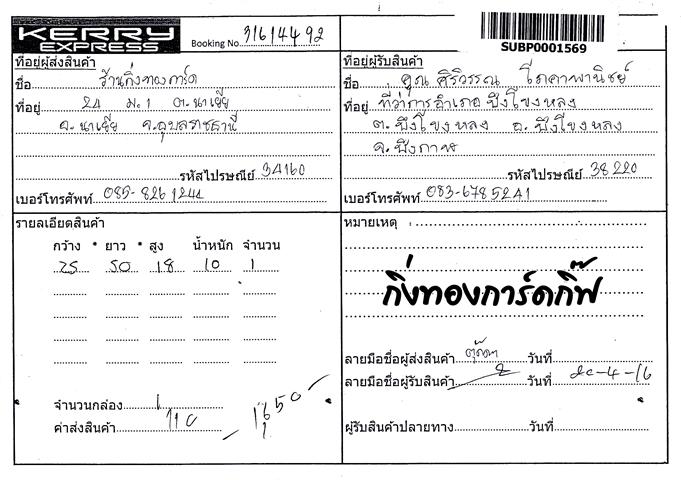 KERRY
EXPRESS
Booking No. 31614492
SUBP0001569
ที่อยู่ผู้ส่งสินค้า
ชื่อ ร้านกิ่งทองการ์ด
ที่อยู่ 24 ม.1 ต.นาเยีย
อ.นาเยีย จ.อุบลราชธานี
รหัสไปรษณีย์ 34160
เบอร์โทรศัพท์ 085-8261244
ที่อยู่ผู้รับสินค้า
ชื่อ คุณ ศิริวรรณ โภคาพานิชย์
ที่อยู่ ที่ว่าการอำเภอ บึงโขงหลง
ต. บึงโขงหลง อ. บึงโขงหลง
จ.บึงกาฬ
รหัสไปรษณีย์ 38220
เบอร์โทรศัพท์ 083-6785241
รายละเอียดสินค้า
กว้าง * ยาว * สูง น้ำหนัก จำนวน
25 50 18 10 1
จำนวนกล่อง 1
ค่าส่งสินค้า 110
หมายเหตุ
กิ่งทองการ์ดกิ๊ฟ
ลายมือชื่อผู้ส่งสินค้า วันที่
ลายมือชื่อผู้รับสินค้า วันที่ 20-4-16
ผู้รับสินค้าปลายทาง วันที่